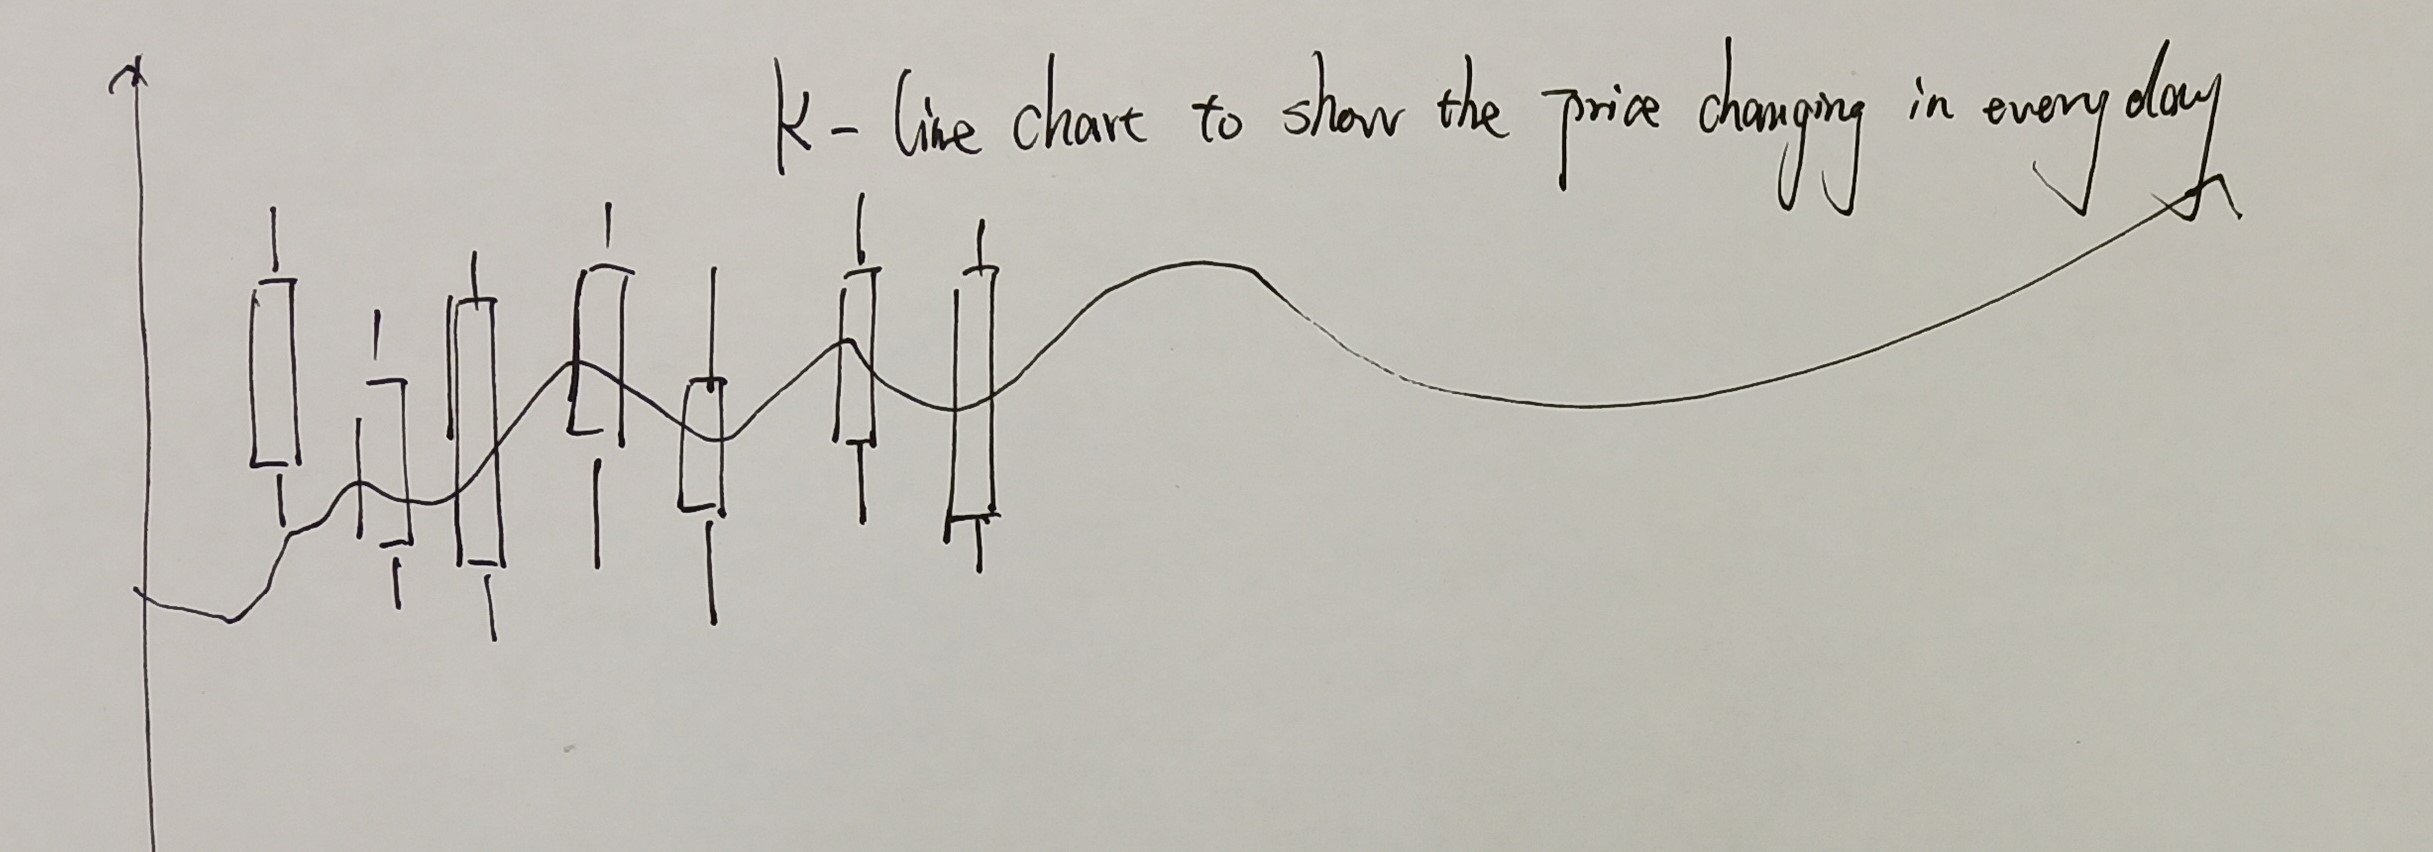 K- line chart to show the price changing in every day